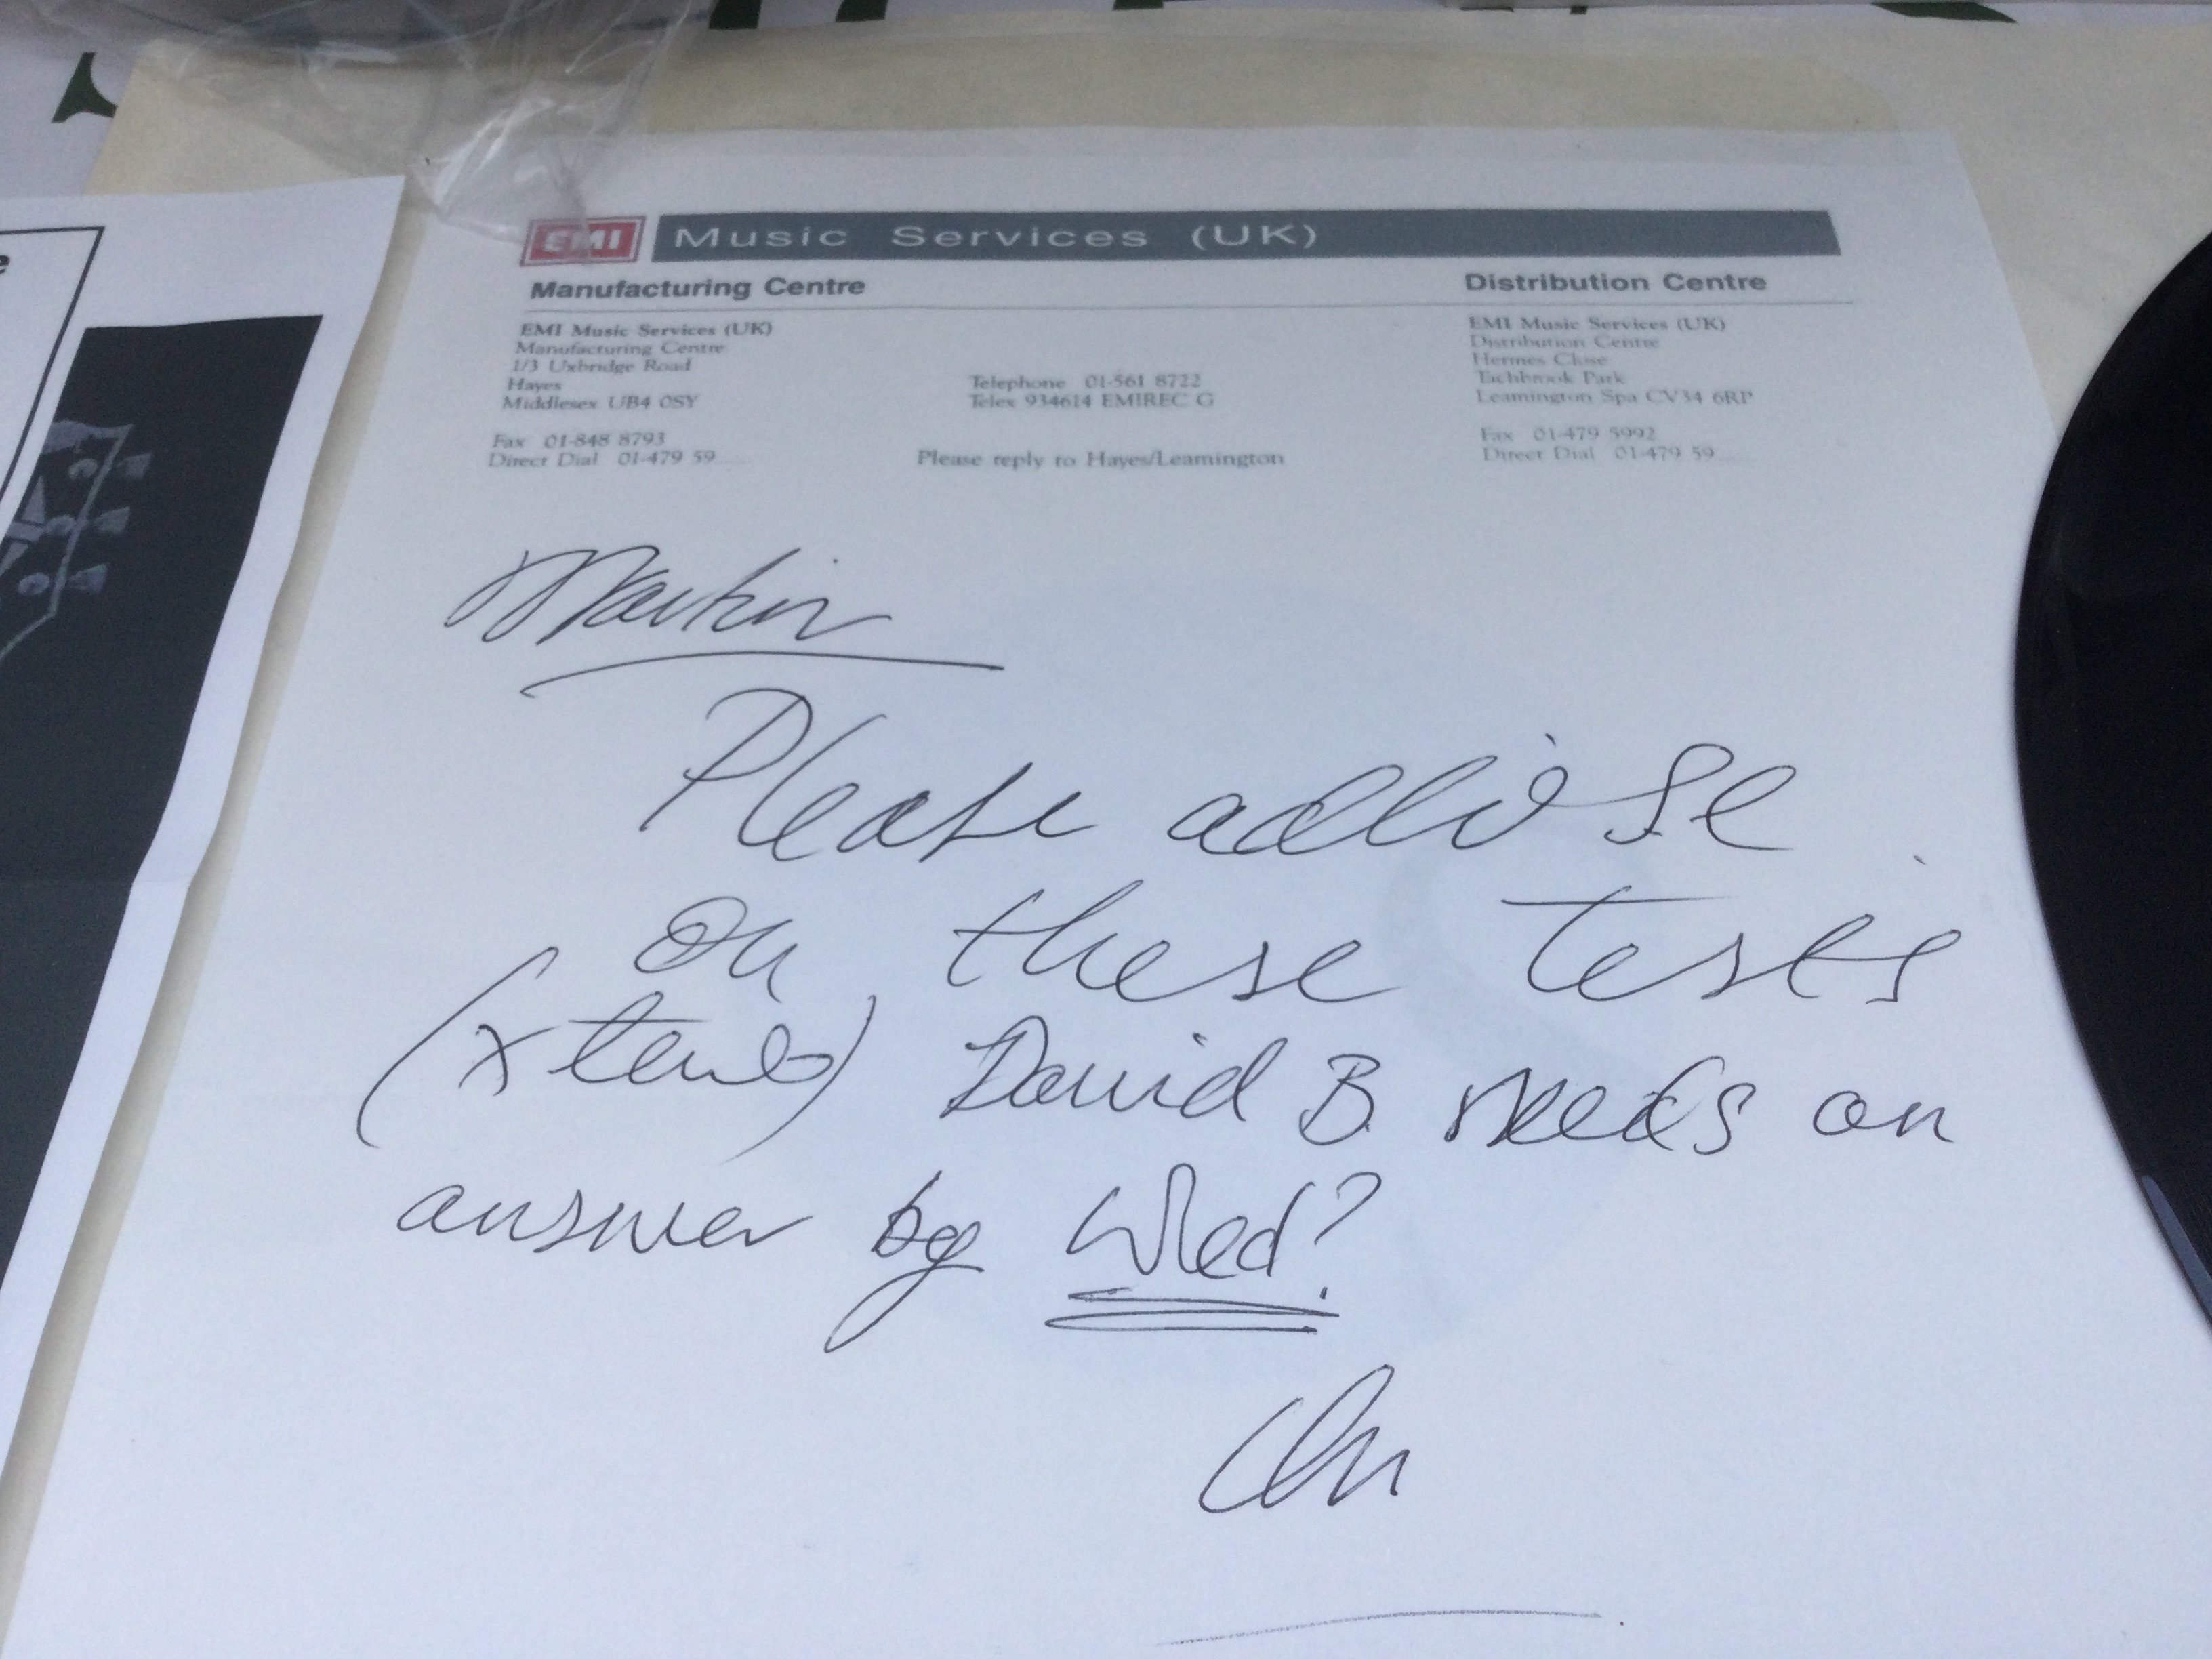 EMI Music Services (UK)
Manufacturing Centre
Distribution Centre
EMI Music Services (UK)
Manufacturing Centre
1/3 Uxbridge Road
Hayes
Middlesex UB4 0SY
Fax 01-848 8793
Direct Dial 01-479 59......
Telephone 01-561 8722
Telex 934614 EMIREC G
Please reply to Hayes/Leamington
EMI Music Services (UK)
Distribution Centre
Hermes Close
Tachbrook Park
Leamington Spa CV34 6RP
Fax 01-479 5992
Direct Dial 01-479 59......
Martin
Please advise
on these tests
David B needs an
answer by Wed?